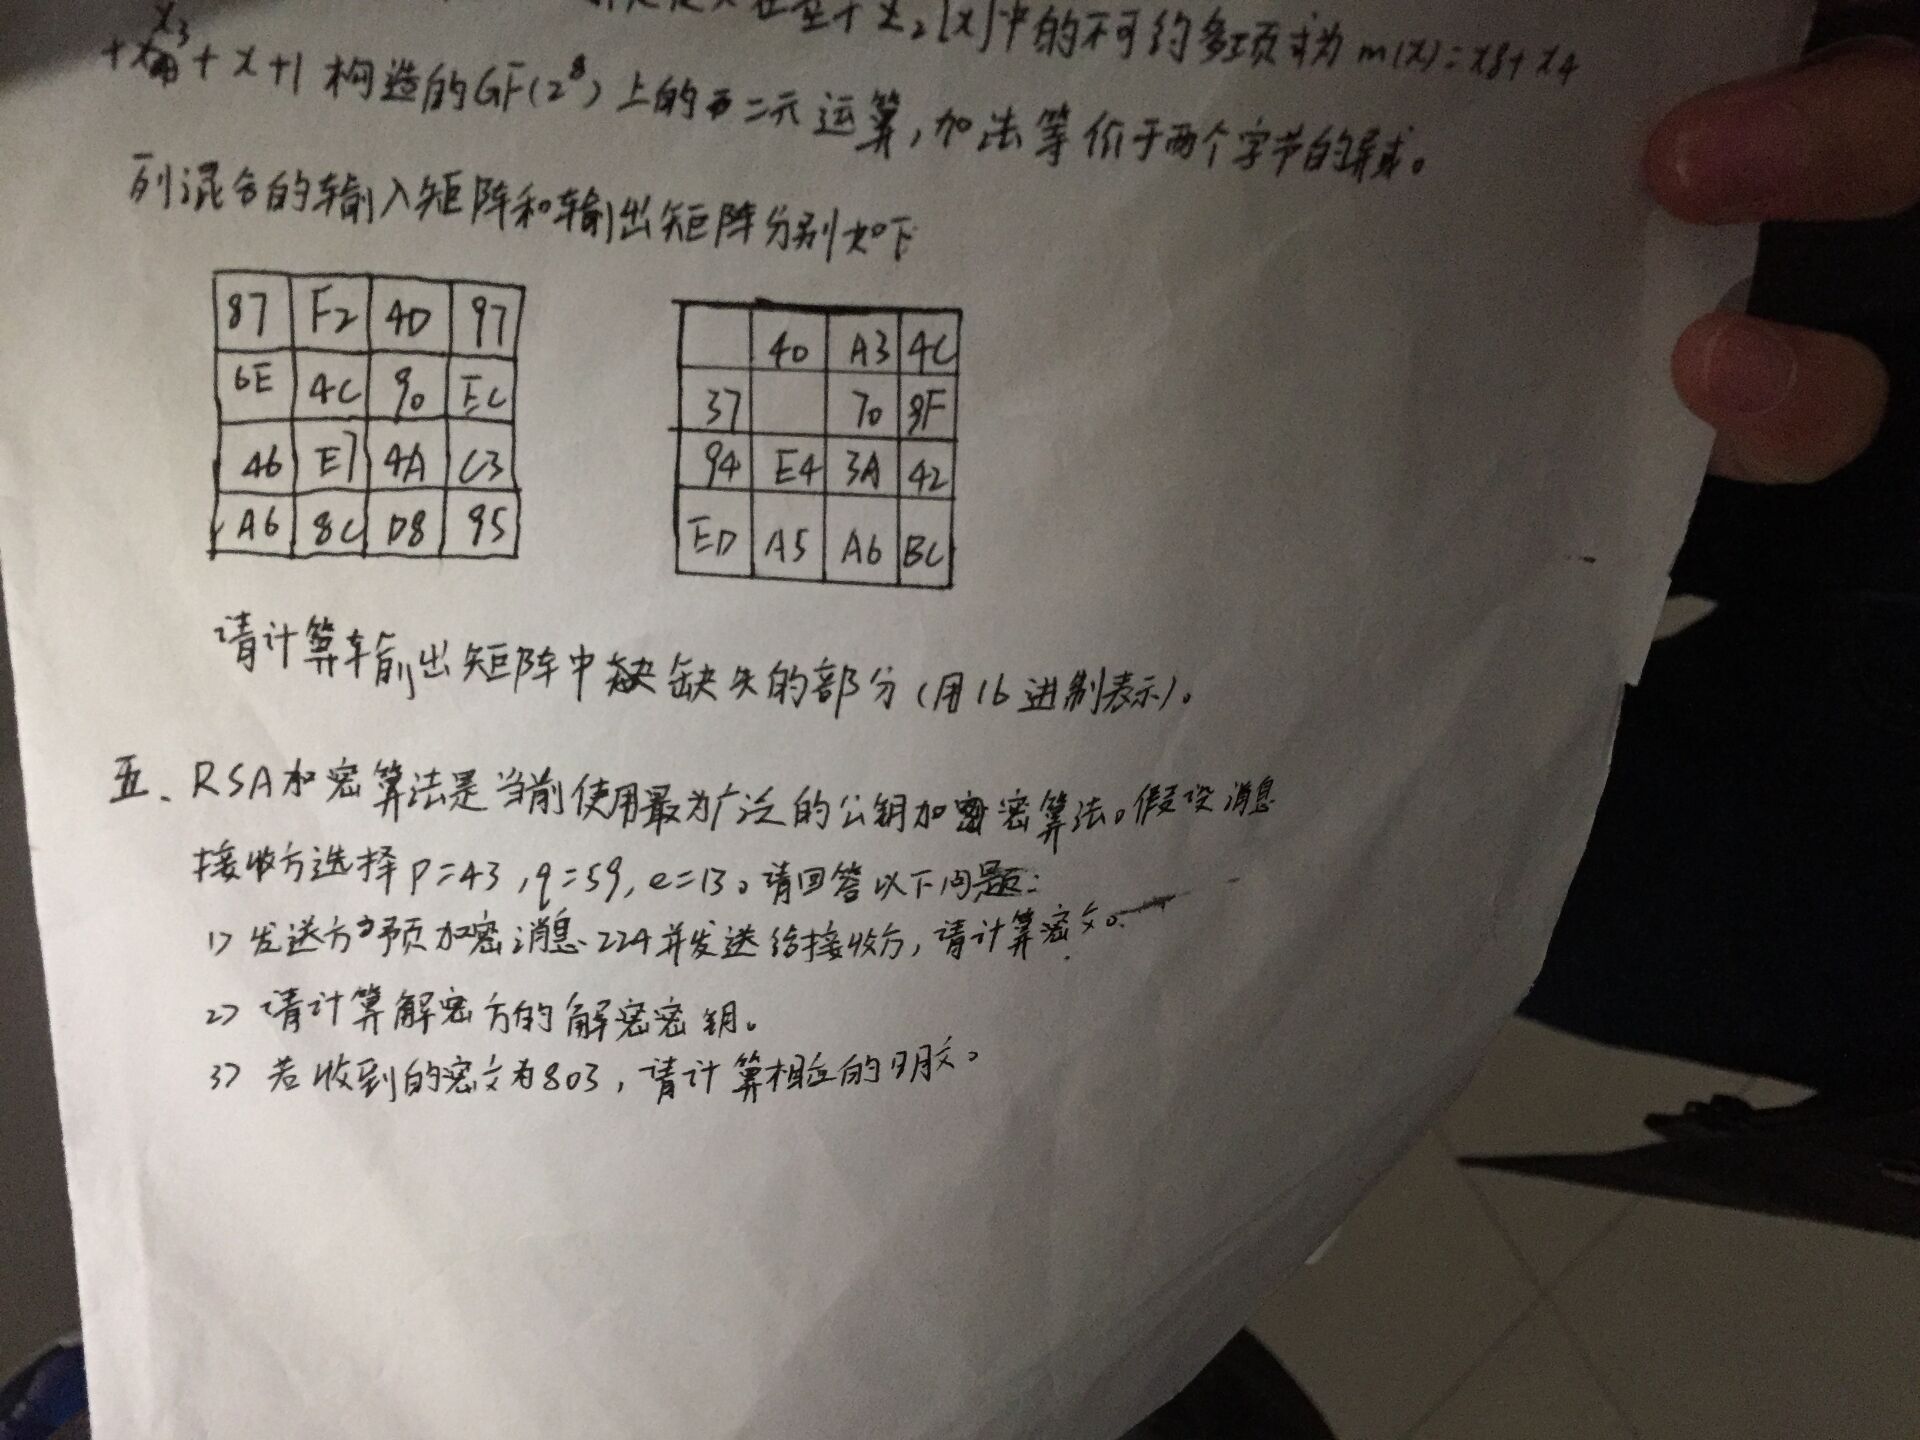 中的不可约多项式为 m(x)=x8+x4
+x3+x+1 构造的GF(2^8)上的二元运算,加法等价于两个字节的异或。
列混合的输入矩阵和输出矩阵分别如下
87 F2 4D 97
6E 4C 90 EC
46 E7 4A C3
A6 8C D8 95
40 A3 4C
37 70 9F
94 E4 3A 42
ED A5 A6 BC
请计算输出矩阵中缺失的部分(用16进制表示)。
五、RSA加密算法是当前使用最为广泛的公钥加密算法。假设消息
接收方选择 p=43,q=59,e=13。请回答以下问题:
1> 发送方预加密消息224并发送给接收方,请计算密文。
2> 请计算解密方的解密密钥。
3> 若收到的密文为803,请计算相应的明文。